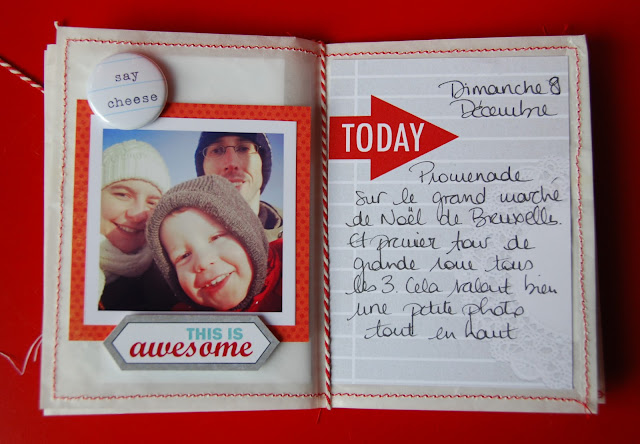 say
cheese
THIS IS
awesome
Dimanche 8
Décembre
TODAY
Promenade
sur le grand marché
de Noël de Bruxelles.
Et premier tour de
grande roue tous
les 3 Cela valait bien
une petite photo
tout en haut